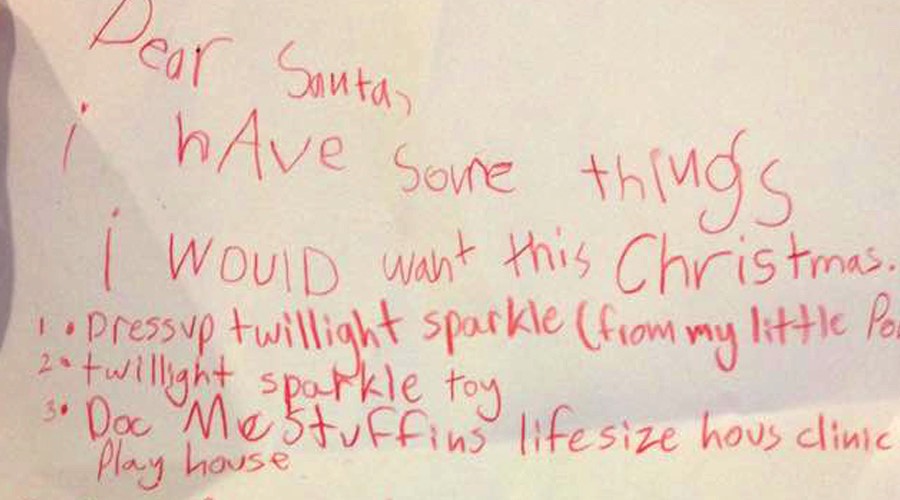 Dear Santa,
i hAve some things
i WOUlD want this Christmas.
1. Dressup twillight sparkle (from my little Po
2. twillight sparkle toy
3. Doc McStuffins lifesize hous clinic
Play house